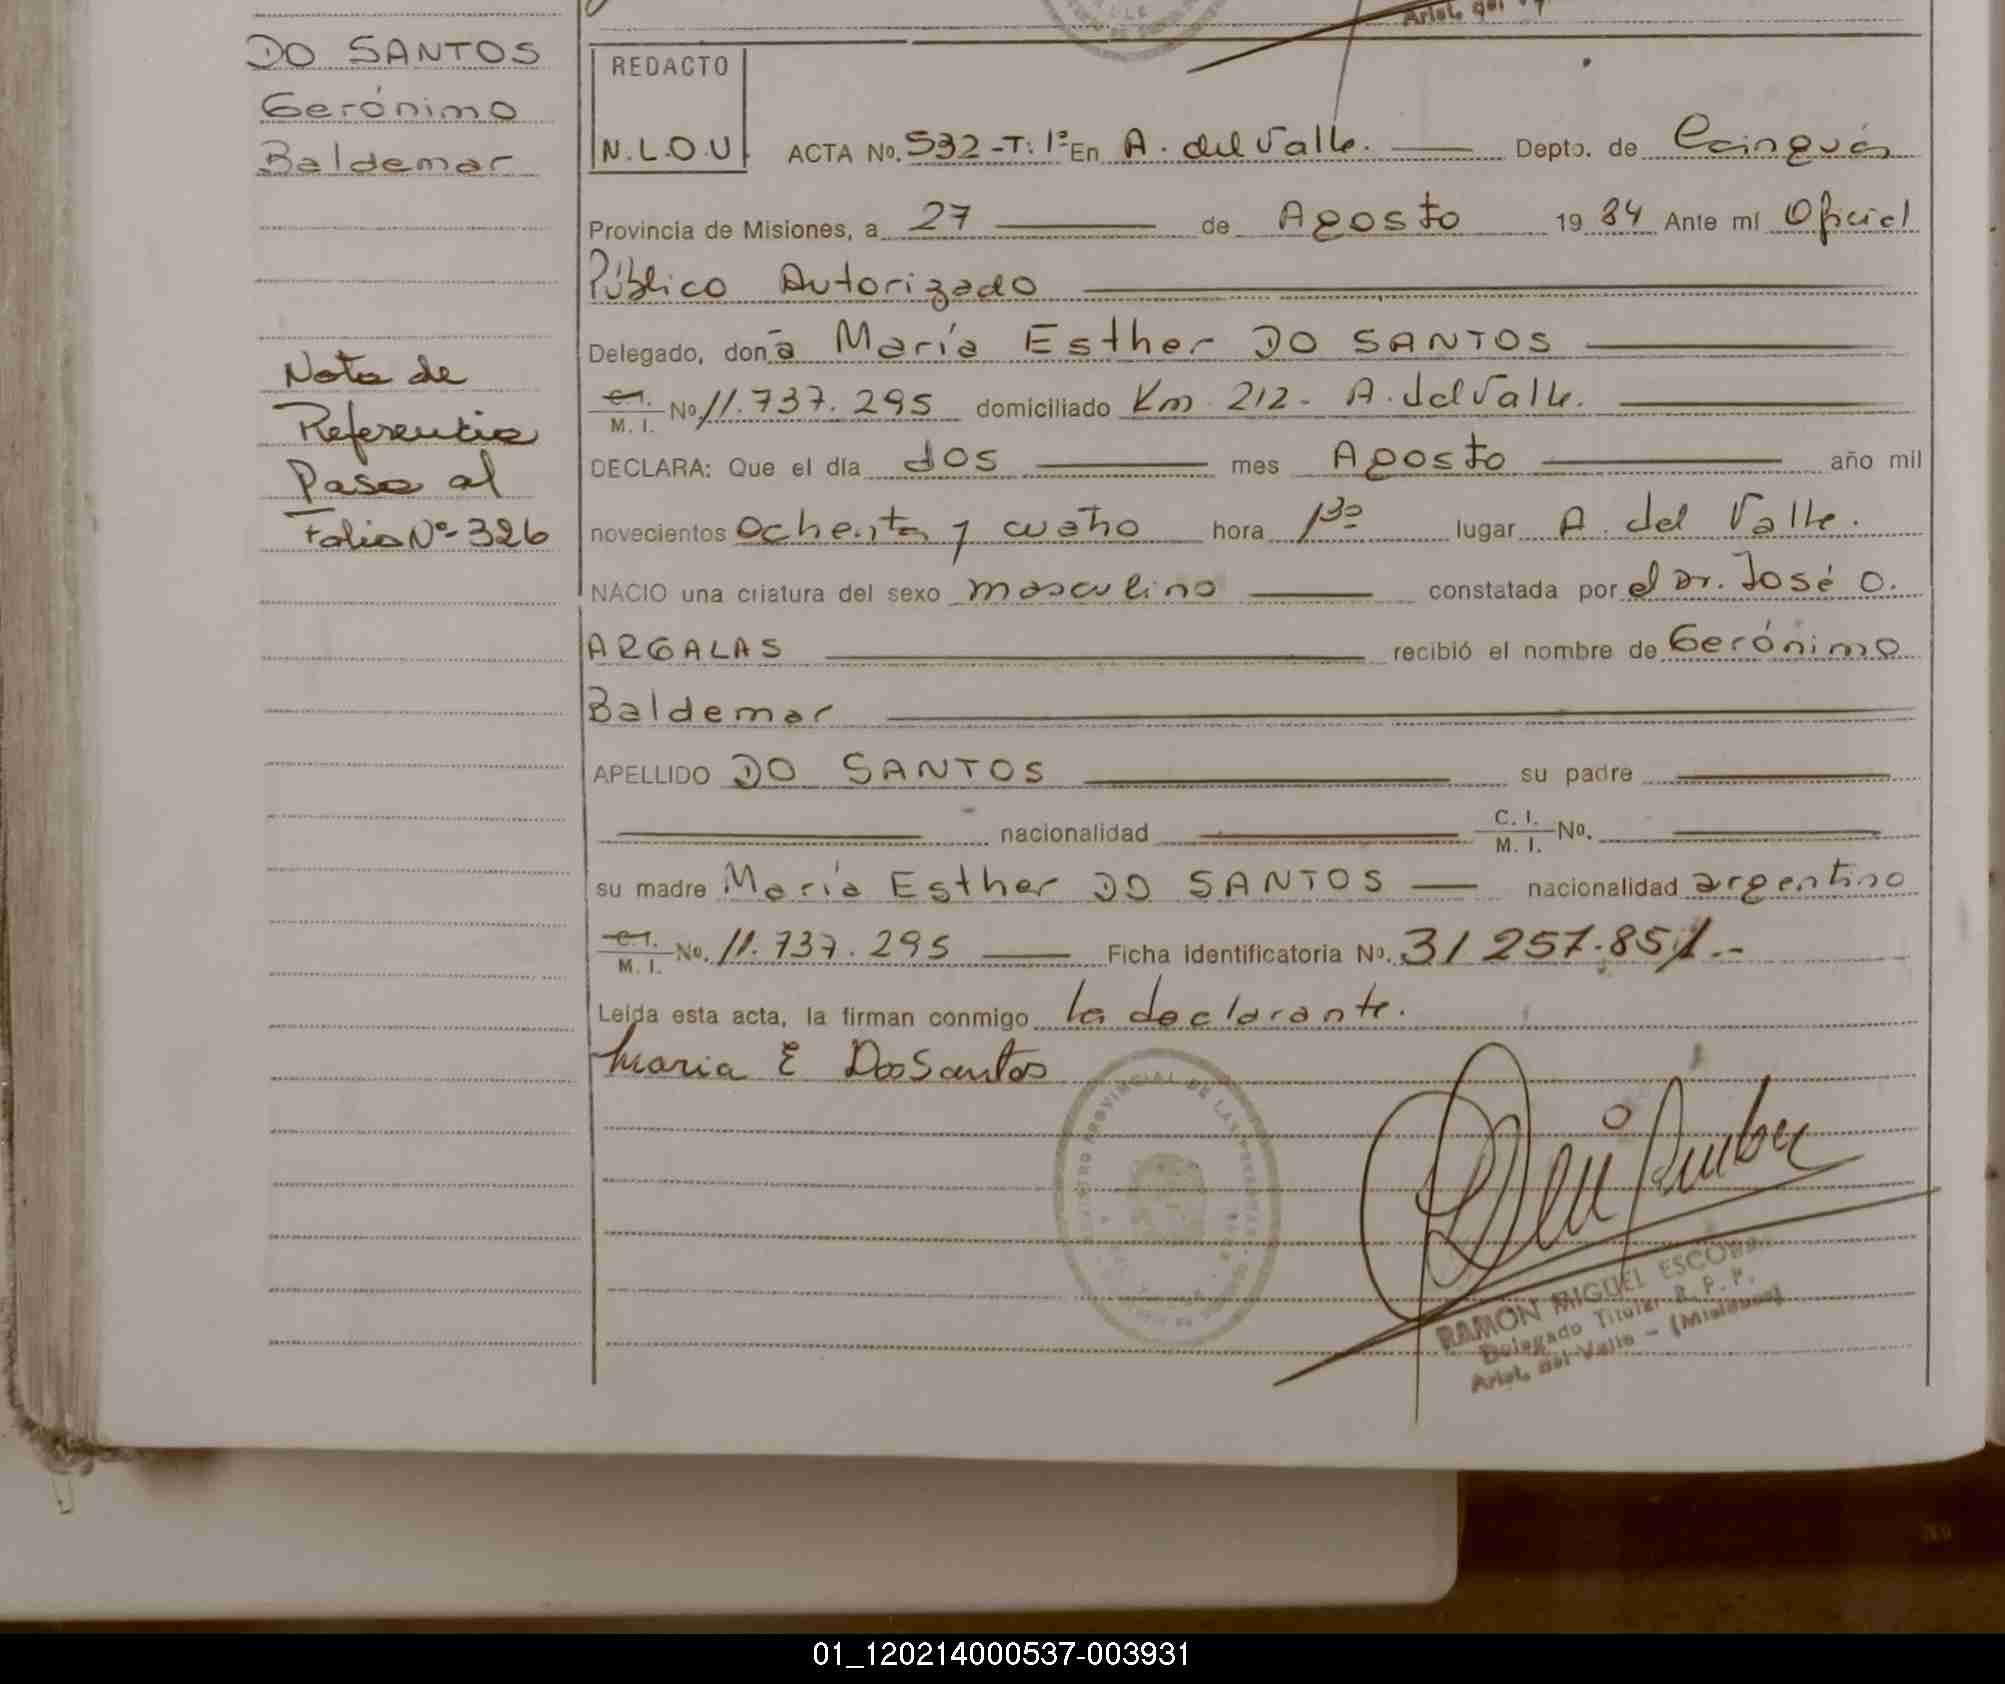 DO SANTOS
Gerónimo
Baldemar
Nota de
Referencia
Pasa al
Folio Nº 326
Arist. del
REDACTO
N.L.O.U.
ACTA No. 532-T: 1º En A. del Valle. Depto. de Cainguás
Provincia de Misiones, a 27 de Agosto 1984 Ante mí Oficial
Público Autorizado
Delegado, doña María Esther DO SANTOS
C.I. M. I. No 11.737.295 domiciliado Km 212 - A. del Valle.
DECLARA: Que el día dos mes Agosto año mil
novecientos ochenta y cuatro hora 1³⁰ lugar A. del Valle.
NACIO una criatura del sexo masculino constatada por el Dr. José O.
ARGALAS recibió el nombre de Gerónimo
Baldemar
APELLIDO DO SANTOS su padre
nacionalidad C. I. M. I. No.
su madre María Esther DO SANTOS nacionalidad argentino
C.I. M. I. No. 11.737.295 Ficha identificatoria No. 31 257.851.-
Leída esta acta, la firman conmigo la declarante.
Maria E DosSantos
RAMON MIGUEL ESCOBAR
Delegado Titular R. P. P.
Arist. del Valle - (Misiones)
01_120214000537-003931